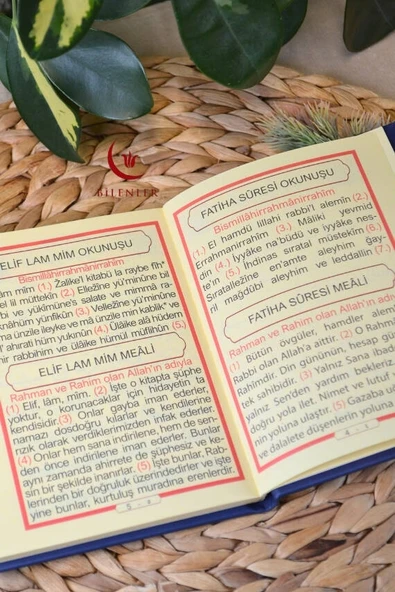 BİLENLER
ELİF LAM MİM OKUNUŞU
Bismillâhirrahmânirrahîm
lâm mîm (1.) Zâlikel kitâbü la raybe fîh
el lil müttekîn (2.) Ellezîne yü'minûne bil
bi ve yükîmûne's-salate ve mimmâ ra-
knâhüm yünfikûn (3.) Vellezîne yü'minûne
ma ünzile ileyke ve mâ ünzile min kablik" ve
l' âhırati hüm yukınûn (4.) Ülâike alâ hüdem
rabbihim ve ülâike hümül müflihûn (5.)
ELİF LAM MİM MEÂLİ
Rahman ve Rahim olan Allah'ın adıyla
(1) Elif, lâm, mîm. (2) İşte o kitapta şüphe
yoktur, o korunacaklar için hidayetin ta
kendisidir. (3) Onlar gayba iman ederler,
namazı dosdoğru kılarlar ve kendilerine
rızık olarak verdiklerimizden infak ederler.
(4) Onlar hem sana indirilene, hem de sen-
den önce indirilene iman ederler. Bunlar
aynı zamanda ahirete de şüphesiz ve ke-
sin bir şekilde inanırlar. (5) İşte bunlar, Rab-
lerinden bir doğruluk üzerindedirler ve işte
yine bunlar, kurtuluş muradına erenlerdir.
FATİHA SÛRESİ OKUNUŞU
Bismillâhirrahmânirrahîm
(1.) El hamdü lillahi rabbi'l alemîn (2.)
Errahmânirrahîm (3.) Mâliki yevmid
dîn (4.) İyyâke na'büdü ve iyyâke nes-
te'în (5.) İhdinas sıratal müstekîm (6.)
Sıratallezîne en'amte aleyhim ğay-
ril mağdûbi aleyhim ve leddallîn (7.)
FATİHA SÛRESİ MEÂLİ
Rahman ve Rahim olan Allah'ın adıyla
(1) Bütün övgüler, hamdler alemlerin
Rabbi olan Allah'a aittir. (2) O Rahman
Rahimdir. Din gününün, hesap gününün
tek sahibidir. (3) Yalnız Sana ibadet
yalnız Sen'den yardım bekleriz.
doğru yola ilet. Nimet ve lutuf
nin yoluna ulaştır. (5) Gazaba
ve dalalete düşenlerin yoluna